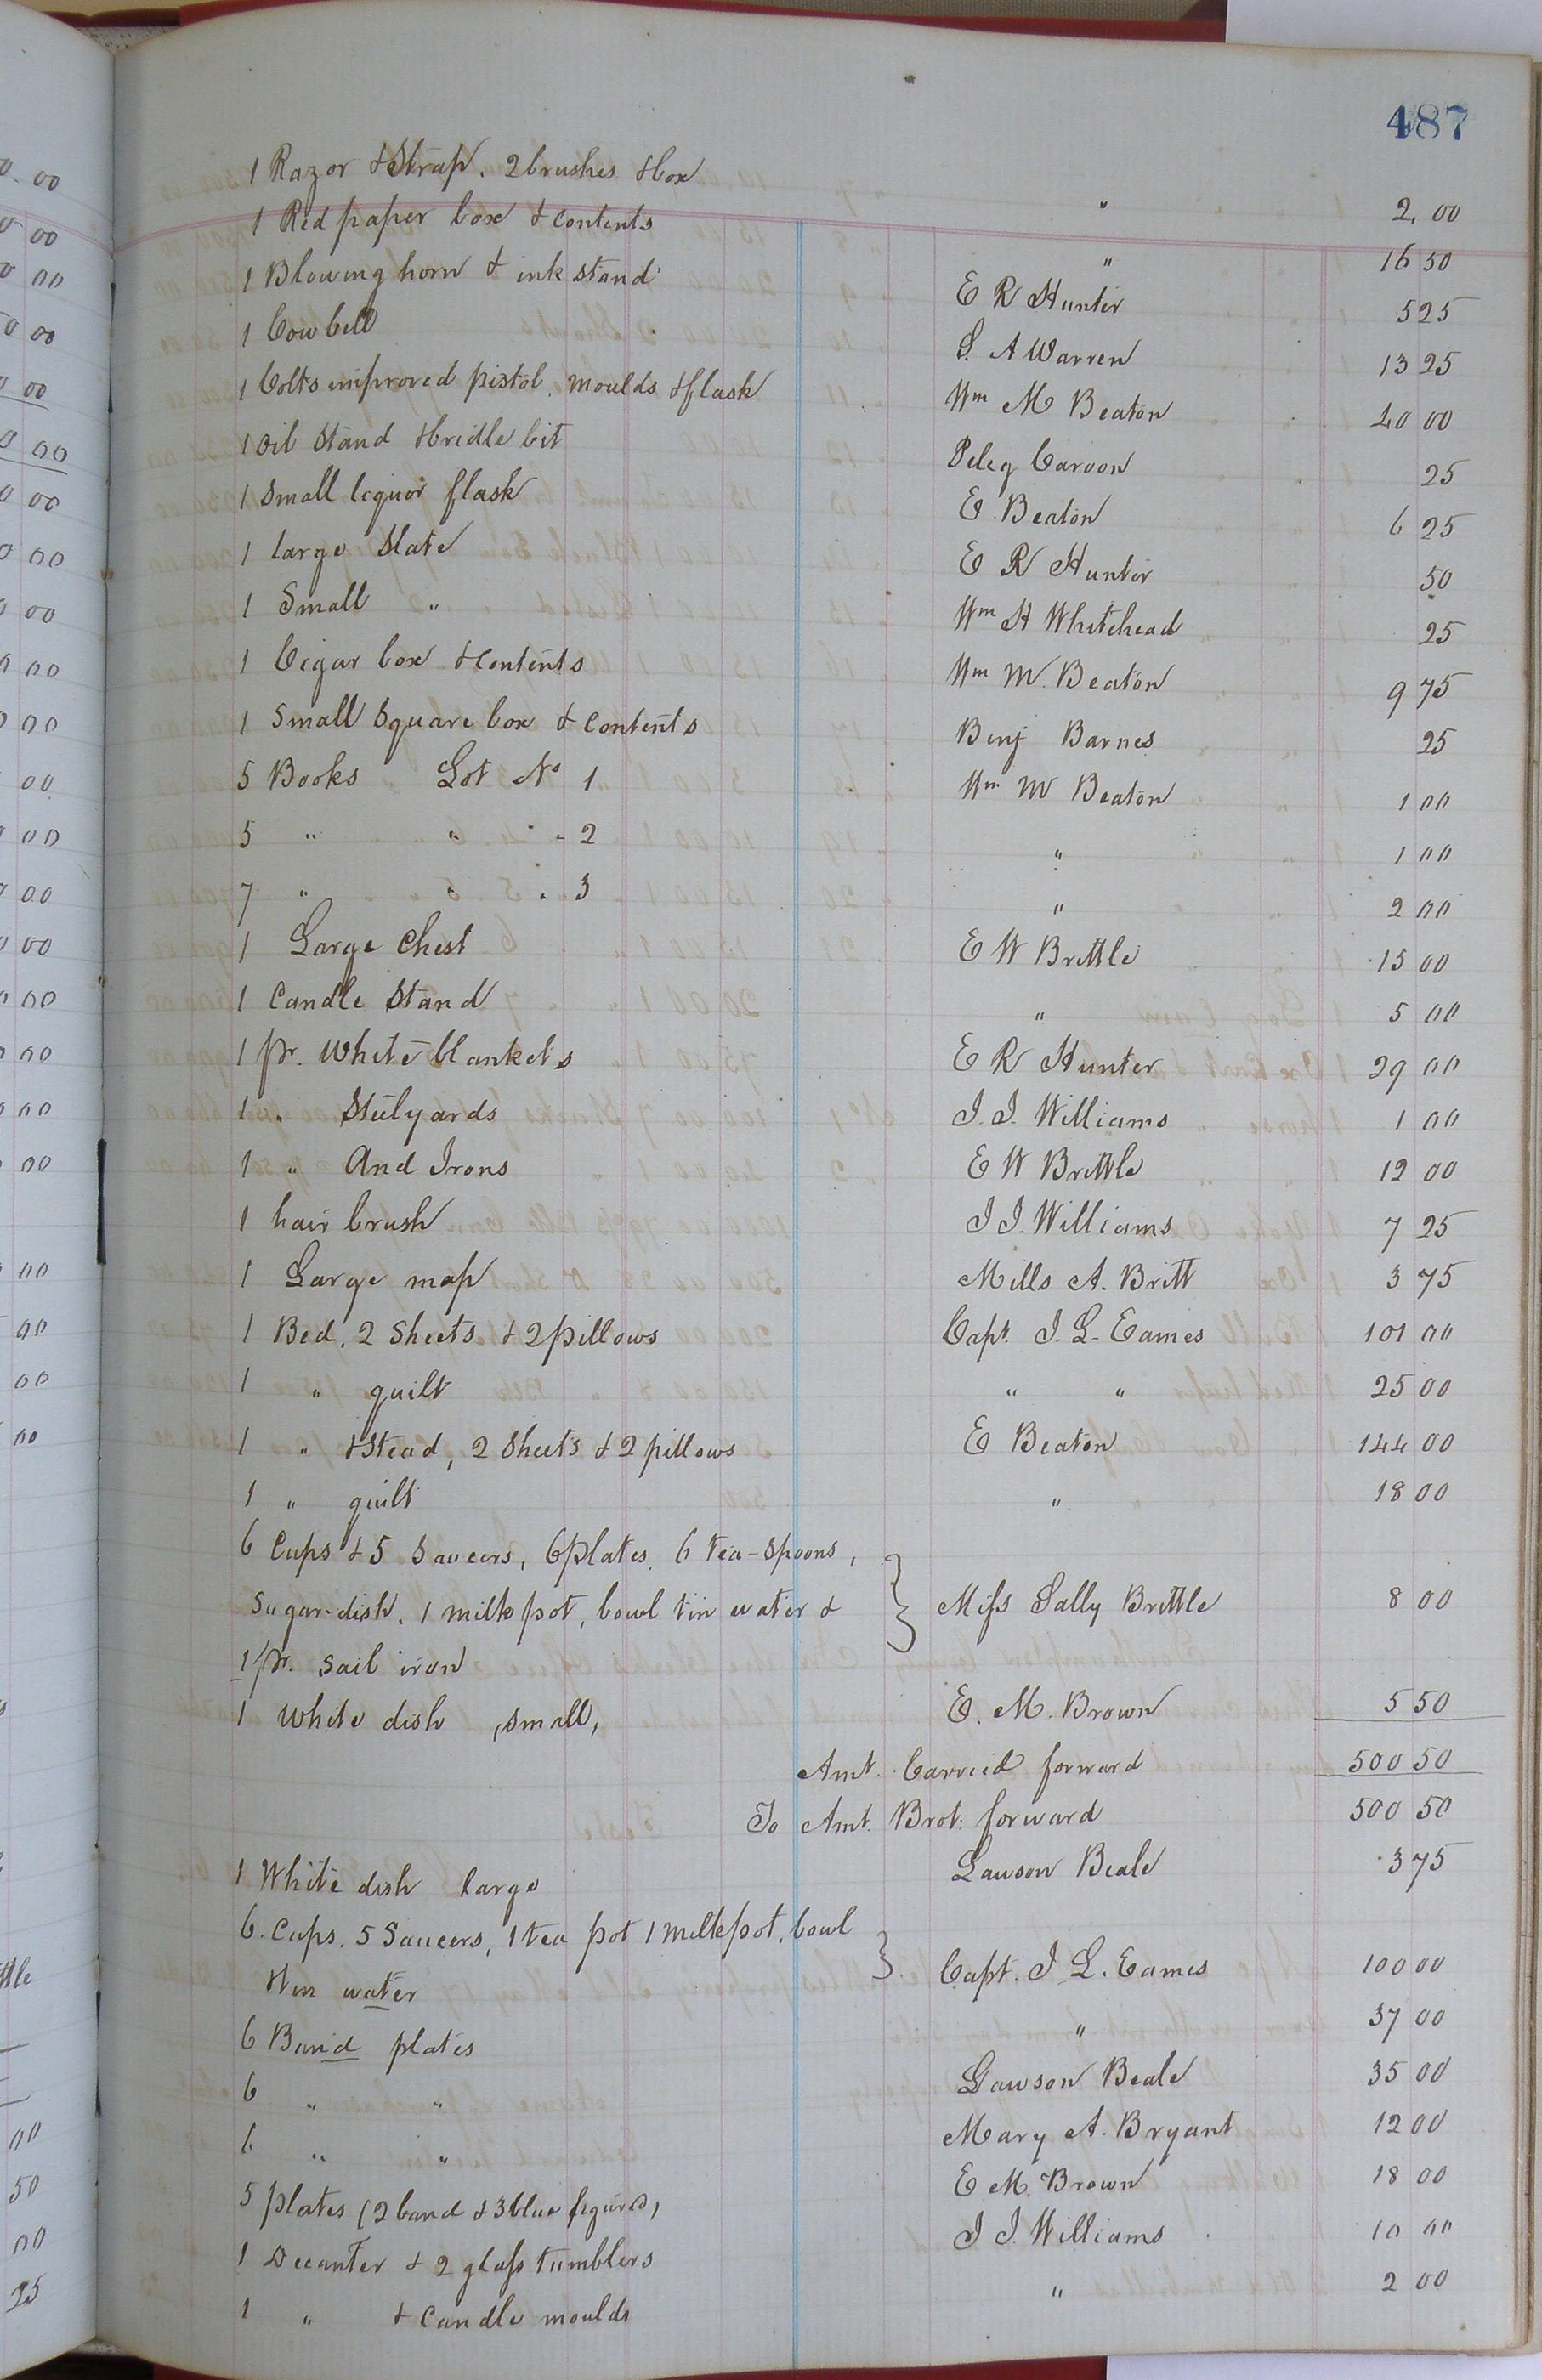 487
1 Razor & Strap. 2 brushes & box " 2,00
1 Red paper box & contents " 16 50
1 Blowing horn & ink stand E R Hunter 5 25
1 Cow bell S. A Warren 13 25
1 Colts improved pistol. moulds & flask Wm M Beaton 40 00
1 oil stand & bridle bit Peleg Caroon 25
1 small liquor flask E. Beaton 6 25
1 large Slate E R Hunter 50
1 Small " Wm H Whitehead 25
1 Cigar box & contents Wm M. Beaton 9 75
1 Small Square box & contents Benj Barnes 25
5 Books Lot No 1 Wm M Beaton 1 00
5 " " " 2 " 1 00
7 " " " 3 " 2 00
1 Large Chest E W Brittle 15 00
1 Candle Stand " 5 00
1 pr. White blankets E R Hunter 29 00
1 " Stelyards J. J. Williams 1 00
1 " And Irons E W Brittle 12 00
1 hair brush J J. Williams 7 25
1 Large map Mills A. Britt 3 75
1 Bed, 2 Sheets & 2 pillows Capt. J. L. Eames 101 00
1 " quilt " " 25 00
1 " & Stead, 2 Sheets & 2 pillows E Beaton 144 00
1 " quilt " 18 00
6 Cups & 5 Saucers, 6 plates, 6 tea-spoons,
Sugar-dish, 1 milk pot, bowl tin water & } Miss Sally Brittle 8 00
1 pr. sail iron
1 White dish, small, E. M. Brown 5 50
Amt. Carried forward 500 50
To Amt. Brot. forward 500 50
1 White dish large Lawson Beale 3 75
6. Cups. 5 Saucers, 1 tea pot 1 milk pot, bowl
& tin water } Capt. J. L. Eames 100 00
6 Band plates " 37 00
6 " " Lawson Beale 35 00
6 " " Mary A. Bryant 12 00
5 plates (2 band & 3 blue figured) E M. Brown 18 00
1 Decanter & 2 glass tumblers J J. Williams 10 00
1 " & Candle moulds " 2 00